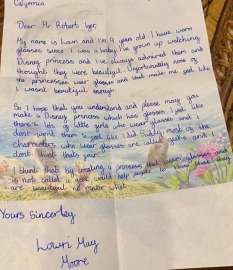 California
Dear Mr Robert Iger,
My name is Lowri and I'm 9 years old I have worn
glasses since I was a baby. I've grown up watching
Disney princess and I've always admired them and
thought they were beautiful. Unfortunately none of
the princesses wear glasses and that make me feel like
I wasn't beautiful enough.
So I hope that you understand and please may you
make a Disney princess which has glasses. I feel like
there's lots of little girls who wear glasses and I
don't want them to feel like I did. Sadly most of the
characters who wear glasses are called geeks and I
don't think that's fair.
I think that by creating a princess that wears glasses and
is not called a geek would help people to think that they
are beautiful no matter what.
Yours Sincerley
Lowri May
Moore